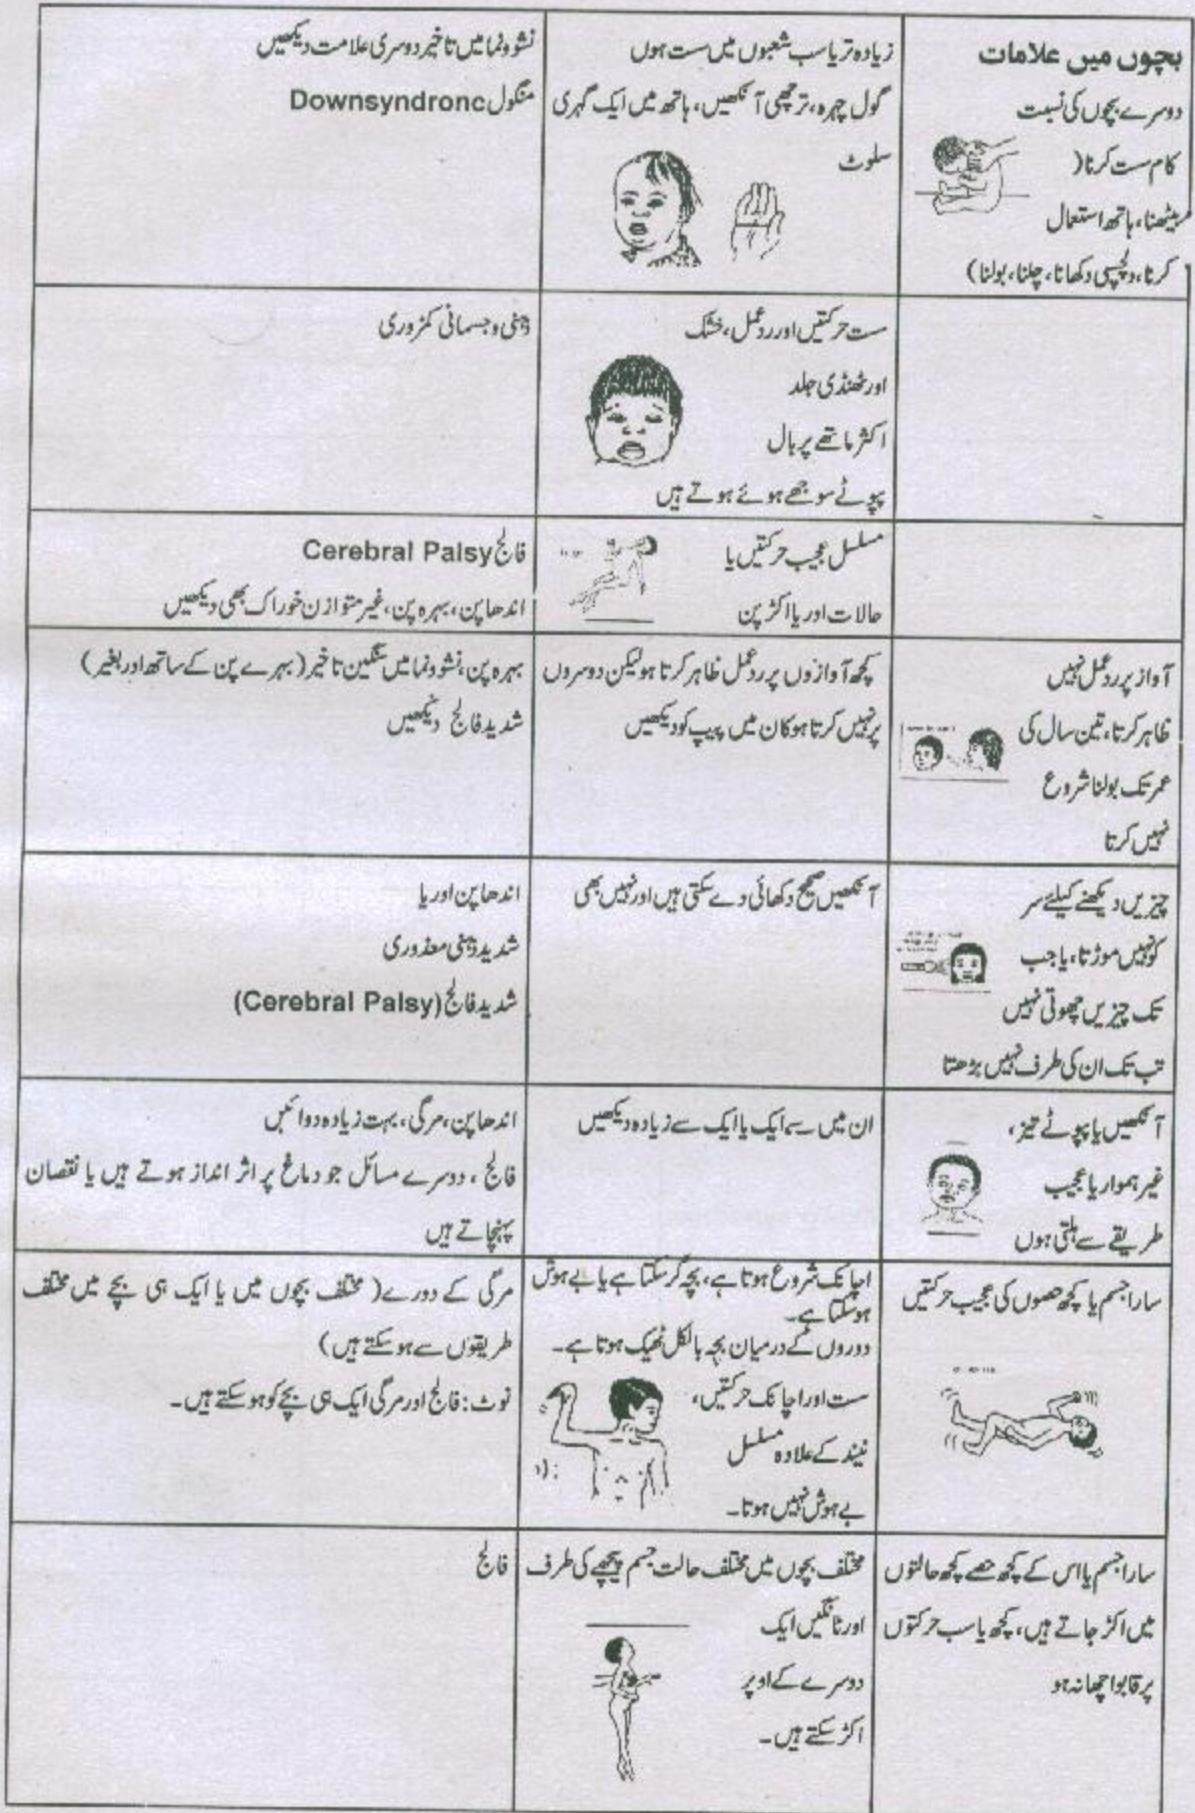 بچوں میں علامات
دوسرے بچوں کی نسبت
کام سست کرنا(
بیٹھنا، ہاتھ استعمال
کرنا، دلچسپی دکھانا، چلنا، بولنا)
زیادہ تر یا سب شعبوں میں ست ہوں
گول چہرہ، ترچھی آنکھیں، ہاتھ میں ایک گہری
سلوٹ
نشوونما میں تاخیر دوسری علامت دیکھیں
منگول Downsyndronc
ست حرکتیں اور ردعمل، خشک
اور ٹھنڈی جلد
اکثر ماتھے پر بال
پپوٹے سوجھے ہوئے ہوتے ہیں
ذہنی و جسمانی کمزوری
مسلسل عجیب حرکتیں یا
حالات اور یا اکڑ پن
فالج Cerebral Palsy
اندھا پن، بہرہ پن، غیر متوازن خوراک بھی دیکھیں
آواز پر ردعمل نہیں
ظاہر کرتا، تین سال کی
عمر تک بولنا شروع
نہیں کرتا
کچھ آوازوں پر ردعمل ظاہر کرتا ہو لیکن دوسروں
پر نہیں کرتا ہو کان میں پیپ کو دیکھیں
بہرہ پن، نشوونما میں سنگین تاخیر (بہرے پن کے ساتھ اور بغیر)
شدید فالج دیکھیں
چیزیں دیکھنے کیلئے سر
کو نہیں موڑتا، یا جب
تک چیزیں چھوتی نہیں
تب تک ان کی طرف نہیں بڑھتا
آنکھیں صحیح دکھائی دے سکتی ہیں اور نہیں بھی
اندھا پن اور یا
شدید ذہنی معذوری
شدید فالج (Cerebral Palsy)
آنکھیں یا پپوٹے تیز،
غیر ہموار یا عجیب
طریقے سے ہلتی ہوں
ان میں سے ایک یا ایک سے زیادہ دیکھیں
اندھا پن، مرگی، بہت زیادہ دوائیں
فالج، دوسرے مسائل جو دماغ پر اثر انداز ہوتے ہیں یا نقصان
پہنچاتے ہیں
سارا جسم یا کچھ حصوں کی عجیب حرکتیں
اچانک شروع ہوتا ہے، بچہ گر سکتا ہے یا بے ہوش
ہو سکتا ہے۔
دوروں کے درمیان بچہ بالکل ٹھیک ہوتا ہے۔
ست اور اچانک حرکتیں،
نیند کے علاوہ مسلسل
بے ہوش نہیں ہوتا۔
مرگی کے دورے( مختلف بچوں میں یا ایک ہی بچے میں مختلف
طریقوں سے ہو سکتے ہیں)
نوٹ: فالج اور مرگی ایک ہی بچے کو ہو سکتے ہیں۔
سارا جسم یا اس کے کچھ حصے کچھ حالتوں
میں اکڑ جاتے ہیں، کچھ یا سب حرکتوں
پر قابو اچھا نہ ہو
مختلف بچوں میں مختلف حالت جسم پیچھے کی طرف
اور ٹانگیں ایک
دوسرے کے اوپر
اکڑ سکتے ہیں۔
فالج